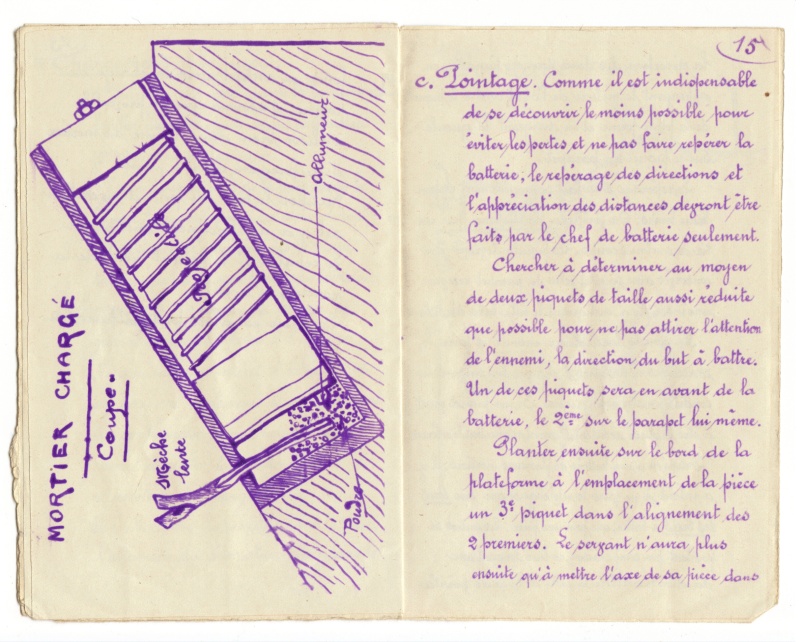 MORTIER CHARGÉ
Coupe.
Mèche
lente
Projectile
allumeur
Poudre
15
c. Pointage. Comme il est indispensable
de se découvrir le moins possible pour
éviter les pertes et ne pas faire repérer la
batterie, le repérage des directions et
l'appréciation des distances devront être
faits par le chef de batterie seulement.
Chercher à déterminer au moyen
de deux piquets de taille aussi réduite
que possible pour ne pas attirer l'attention
de l'ennemi, la direction du but à battre.
Un de ces piquets sera en avant de la
batterie, le 2ème sur le parapet lui même.
Planter ensuite sur le bord de la
plateforme à l'emplacement de la pièce
un 3e piquet dans l'alignement des
2 premiers. Le sergant n'aura plus
ensuite qu'à mettre l'axe de sa pièce dans